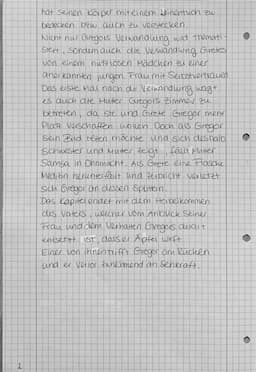 hat seinen Körper mit einem Leintuch zu
bedecken bzw. auch zu verstecken.
Nicht nur Gregors Verwandlung wird themati-
siert, sondern auch die Verwandlung Gretes
von einem nutzlosen Mädchen zu einer
anerkannten jungen Frau mit Selbstvertrauen
Das erste Mal nach der Verwandlung wagt
es auch die Mutter Gregors Zimmer zu
betreten, da sie und Grete Gregor mehr
Platz verschaffen wollen. Doch als Gregor
sein Bild retten möchte und sich deshalb
Schwester und Mutter zeigt, fällt Mutter
Samsa in Ohnmacht. Als Grete eine Flasche
Medizin herunterfällt und zerbricht verletzt
sich Gregor an dessen Splittern.
Das Kapitel endet mit dem Herbeikommen
des Vaters, welcher vom Anblick seiner
Frau und dem Verhalten Gregors derart
entsetzt ist, dass er Äpfel wirft.
Einer von ihnen trifft Gregor am Rücken
und er verlor zunehmend an Sehkraft.
2